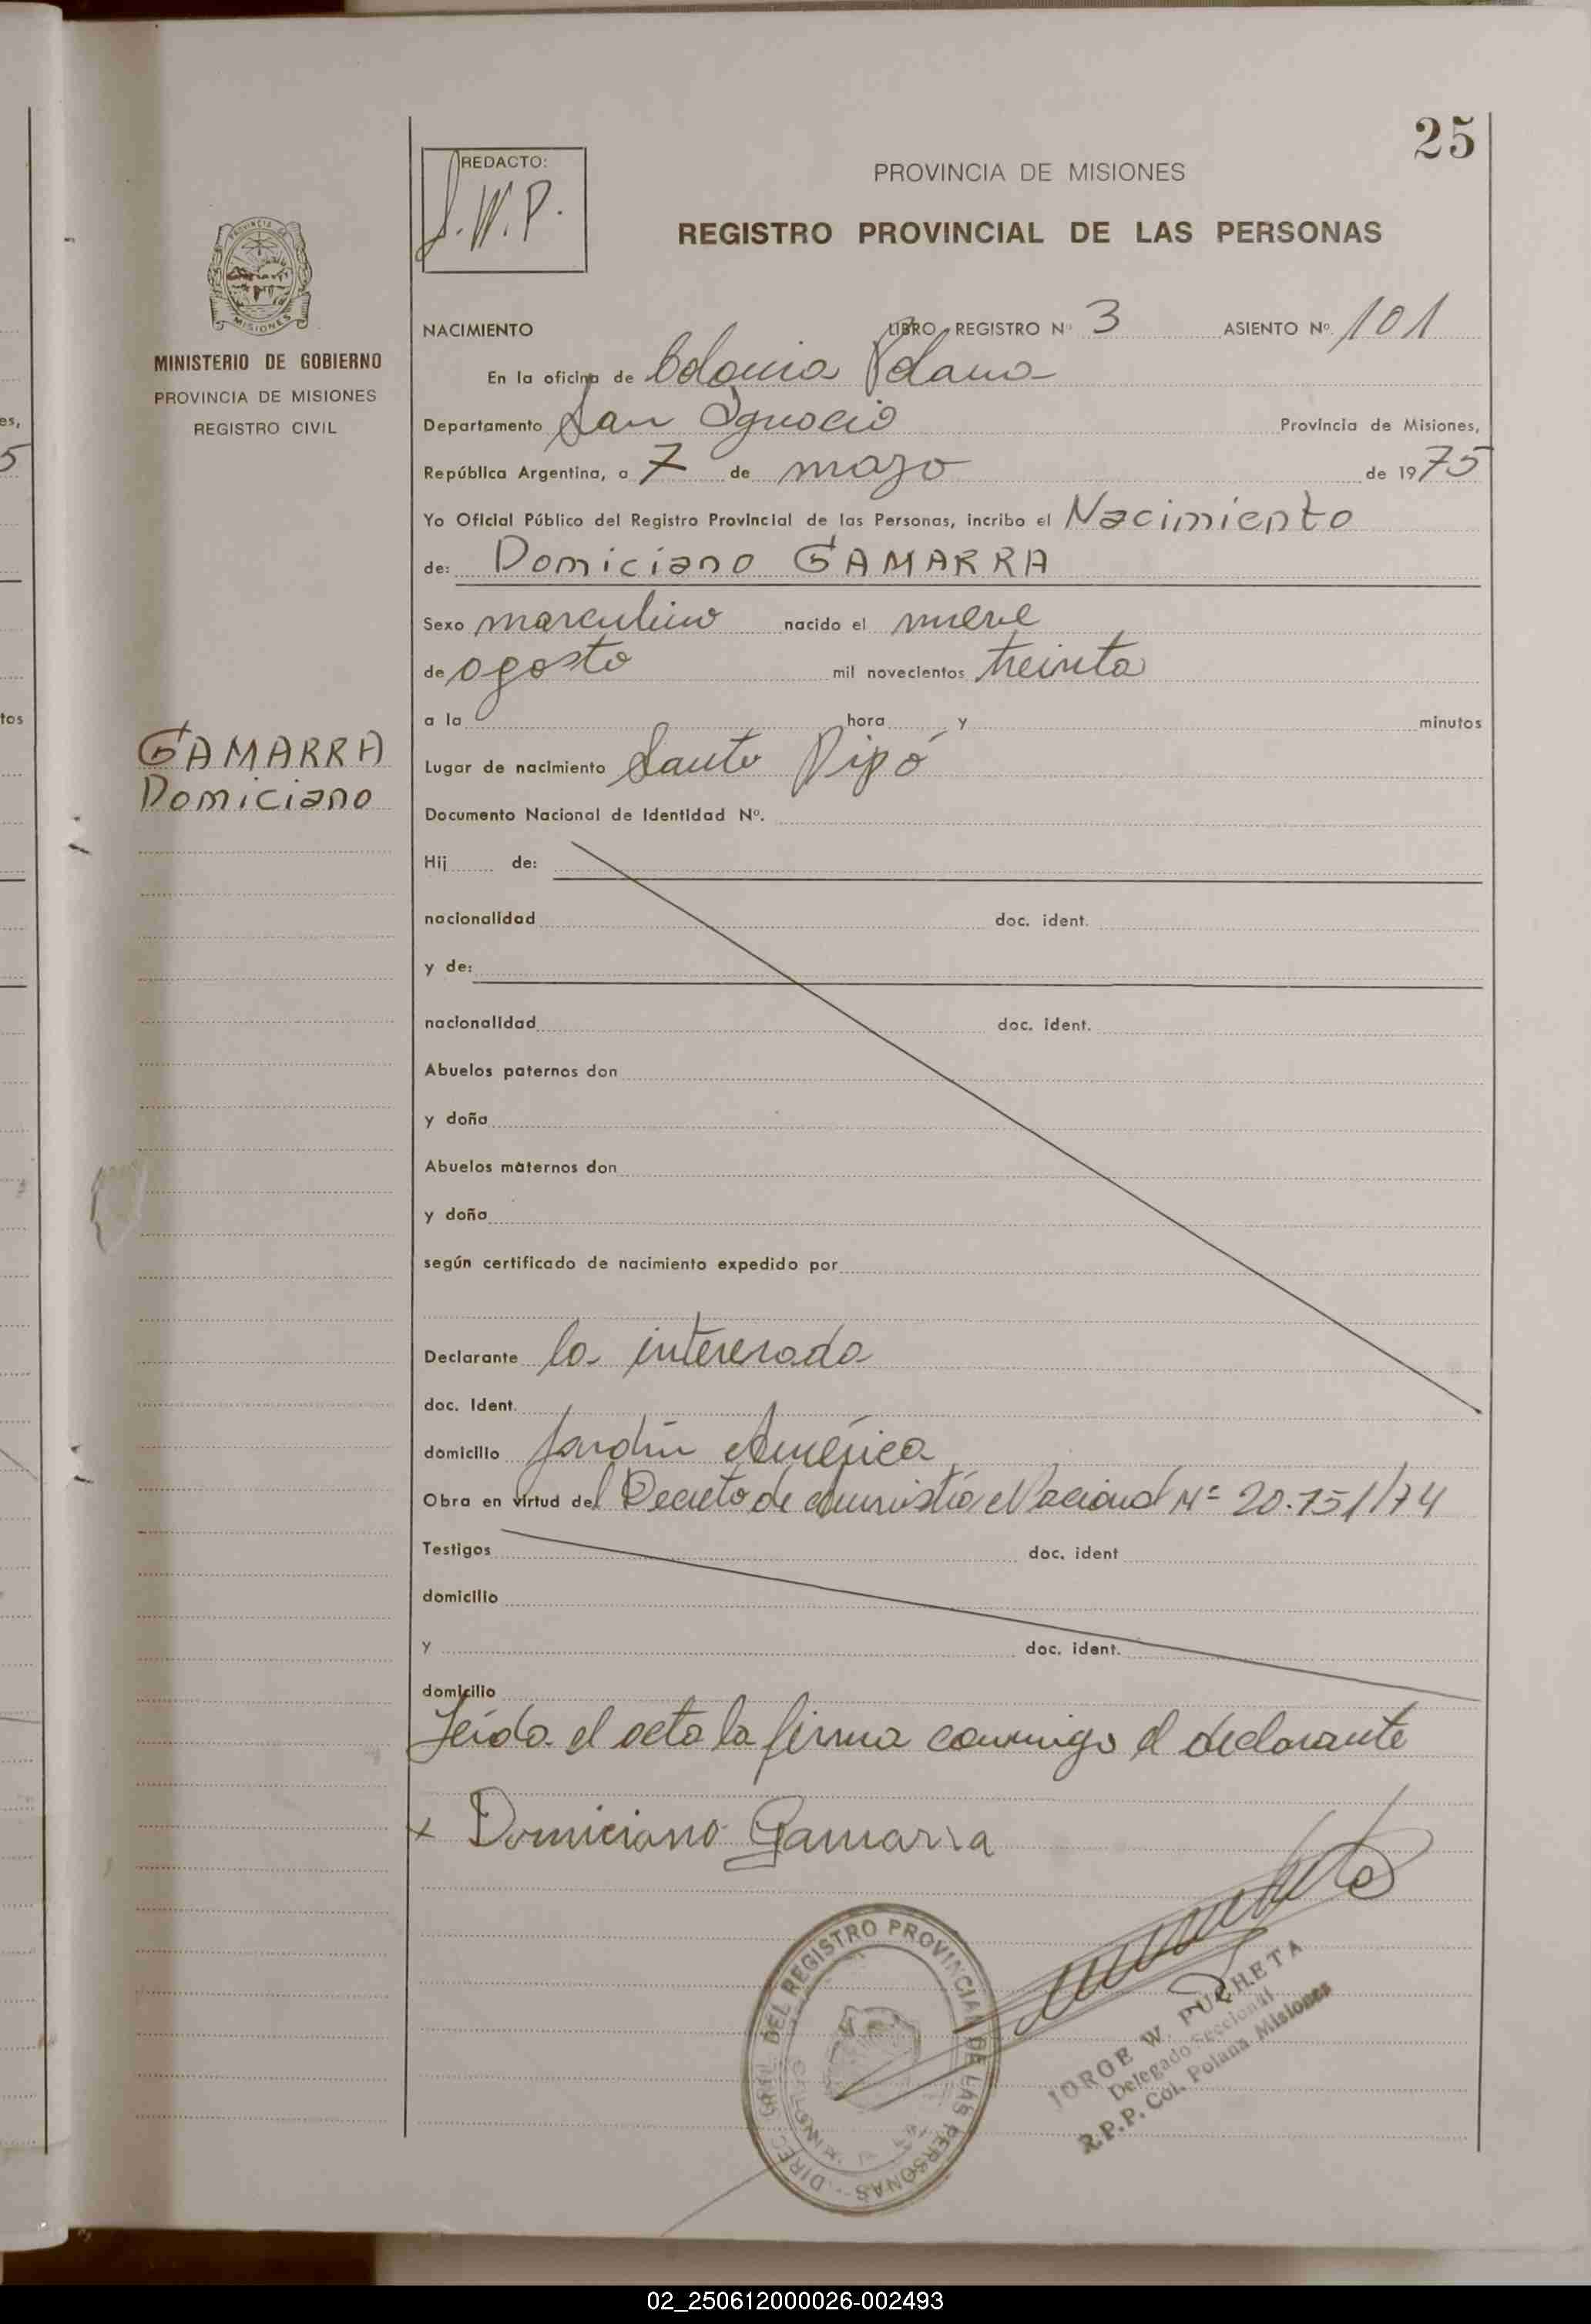 25
REDACTO:
J.W.P.
PROVINCIA DE MISIONES
REGISTRO PROVINCIAL DE LAS PERSONAS
PROVINCIA DE
MISIONES
MINISTERIO DE GOBIERNO
PROVINCIA DE MISIONES
REGISTRO CIVIL
NACIMIENTO LIBRO REGISTRO Nº 3 ASIENTO Nº 101
En la oficina de Colonia Polana
Departamento San Ignacio Provincia de Misiones,
República Argentina, a 7 de mayo de 1975
Yo Oficial Público del Registro Provincial de las Personas, incribo el Nacimiento
de: Domiciano GAMARRA
Sexo masculino nacido el nueve
de agosto mil novecientos treinta
a la hora y minutos
GAMARRA
Domiciano
Lugar de nacimiento Santo Pipó
Documento Nacional de Identidad Nº.
Hij de:
nacionalidad doc. ident.
y de:
nacionalidad doc. ident.
Abuelos paternos don
y doña
Abuelos maternos don
y doña
según certificado de nacimiento expedido por
Declarante la interesada
doc. Ident.
domicilio Jardín América
Obra en virtud del Decreto de Amnistía Nacional Nº 20.751/74
Testigos doc. ident
domicilio
y doc. ident.
domicilio
Leída el acta la firma conmigo el declarante
x Domiciano Gamarra
DIREC. GRAL. DEL REGISTRO PROVINCIAL DE LAS PERSONAS
JORGE W. PUCHETA
Delegado Seccional
R.P.P. Col. Polana Misiones
es,
5
tos
02_250612000026-002493